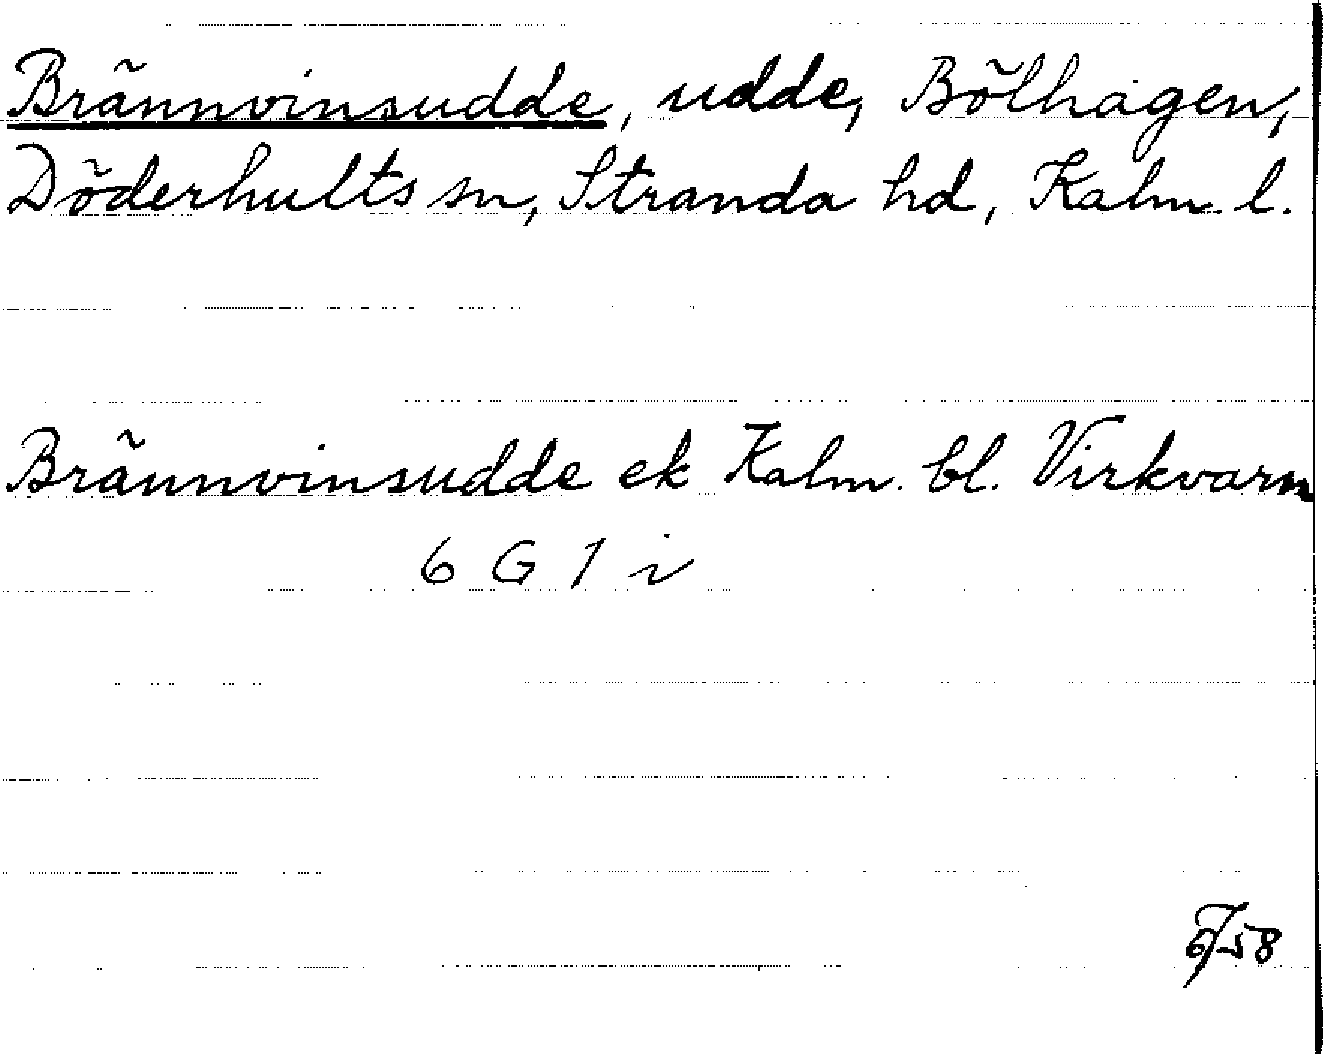 Brännvinsudde, udde, Bölhagen,
Döderhults sn, Stranda hd, Kalm. l.
Brännvinsudde ek Kalm. bl. Virkvarn
6 G 1 i